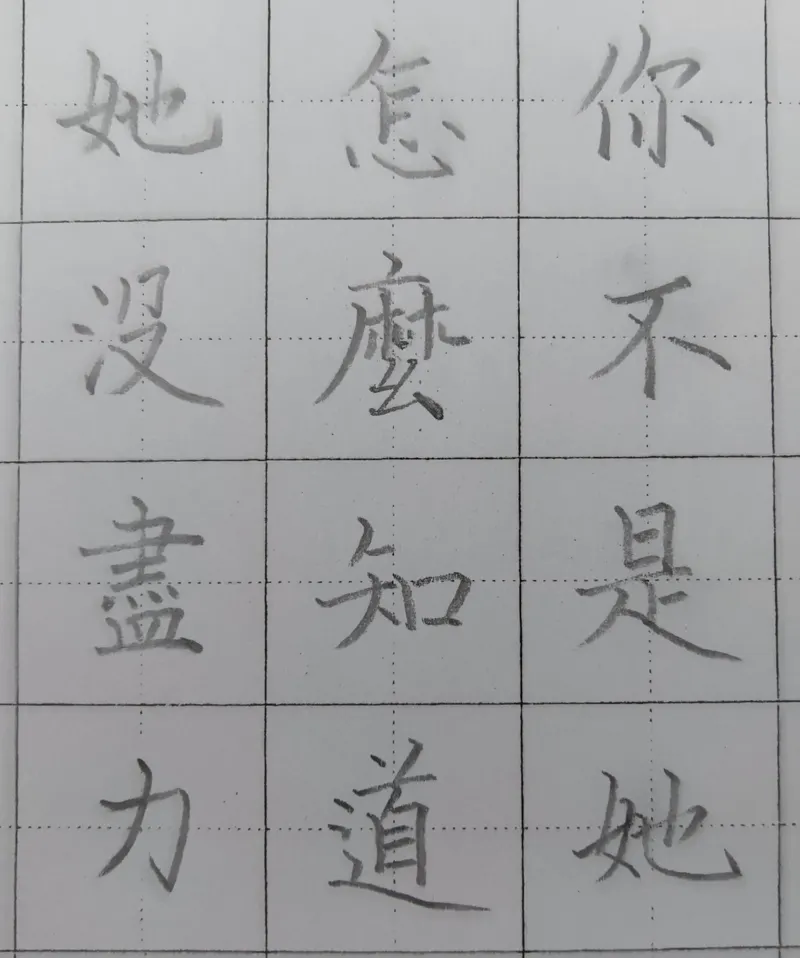 你不是她
怎麼知道
她没盡力